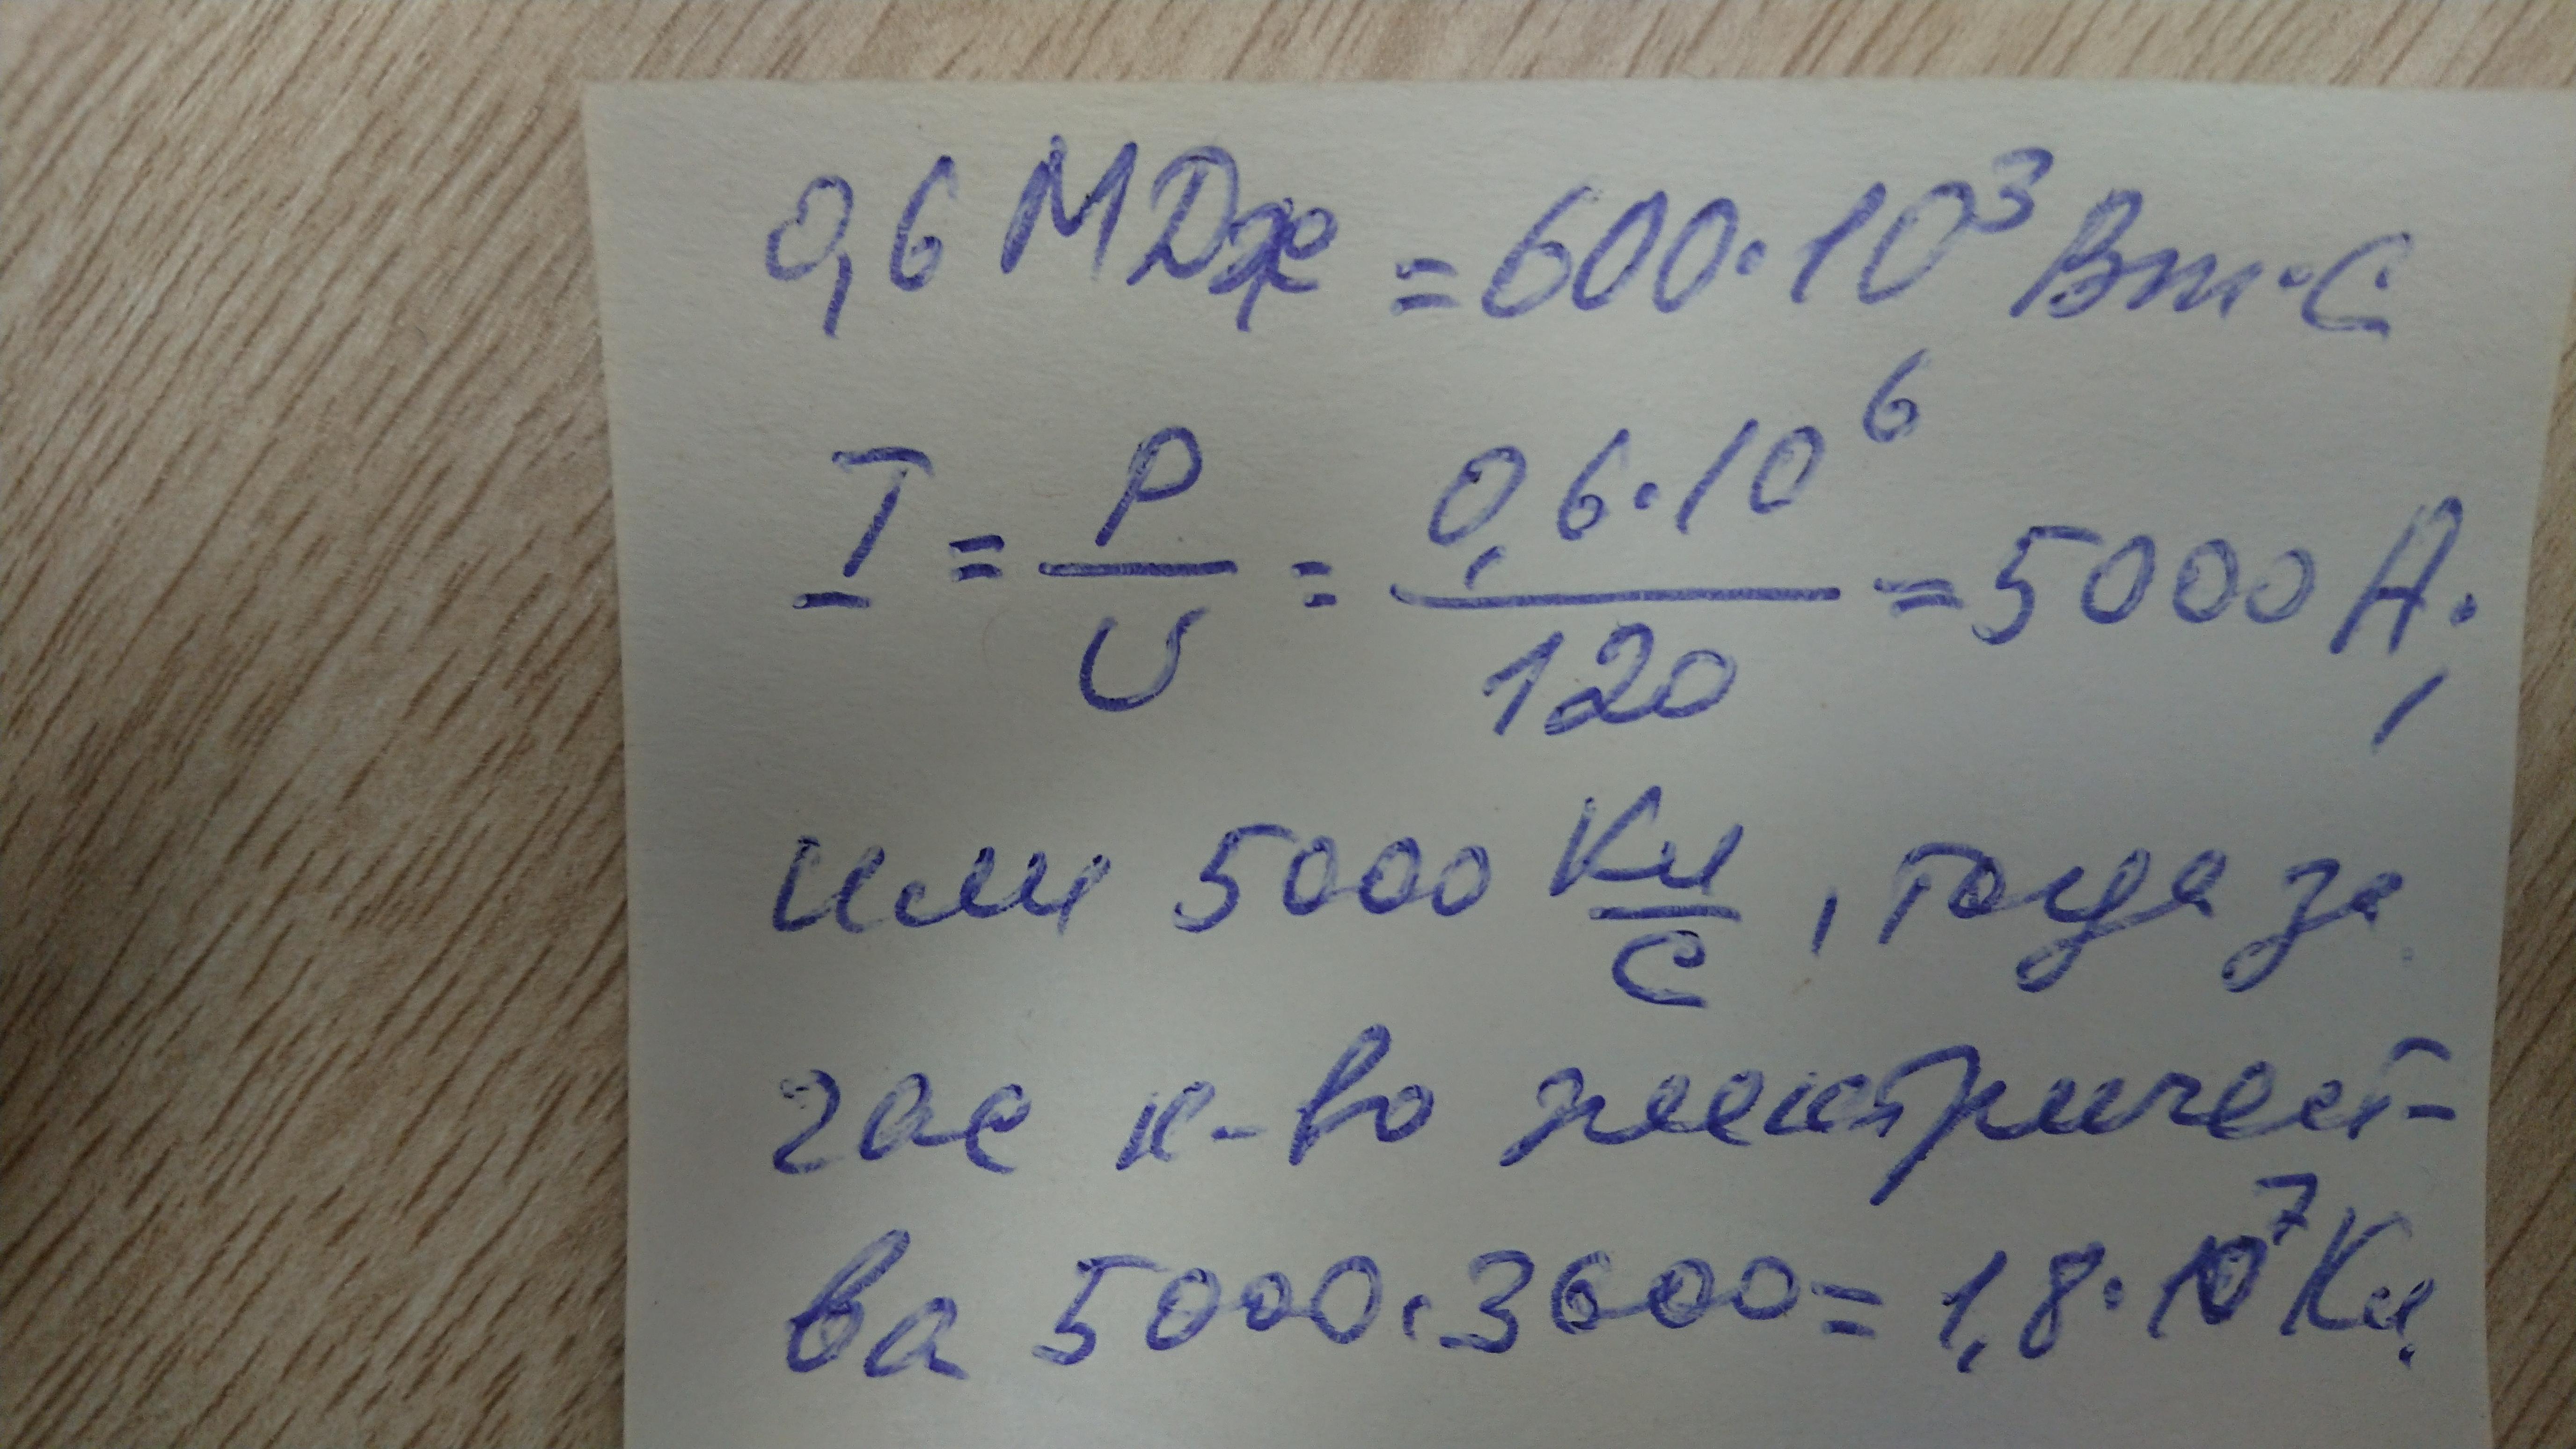 0,6 МДж = 600·10³ Вт·с
I = P/U = 0,6·10⁶/120 = 5000 А;
или 5000 Кл/с, тогда за
час к-во электричест-
ва 5000·3600 = 1,8·10⁷ Кл.